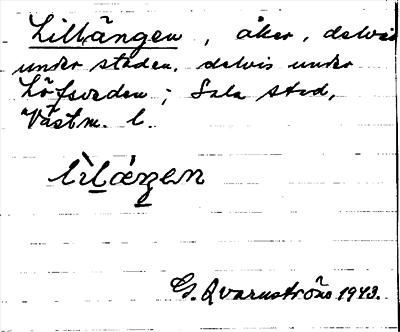 Lillängen, åker, delvis
under staden, delvis under
Löfsveden; Sala stad,
Västm. l.
lìlä́ŋen
G. Qvarnström 1943.